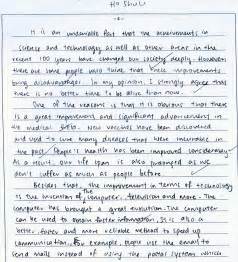 Ho Shuu
It is an undeniable fact that the achievements in
science and technology as well as other areas in the
recent 100 years have changed our society deeply. However
there are some people who think that these improvements
bring disadvantages. In my opinion, I strongly agree that
there is no better time to be alive than now.
One of the reasons is that it is obvious that there
is a great improvement and significant advancement in
the medical field. New vaccines have been discovered
and used to cure many diseases that were incurable in
the past. People's health has been improved considerably
As a result, our life span is also prolonged as we
don't suffer as much as people before.
Besides that, the improvement in terms of technology
is the invention of computer, television and more. The
computer has brought a great evolution. The computer
can be used to obtain information. It is also a
better, and more reliable method to speed up
communication. For example, people use the email to
send mails instead of using the postal system which